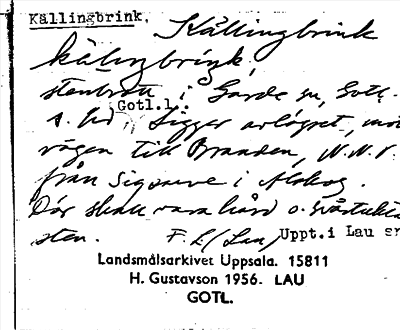 Källingbrink.
Källingbrink
stenbrott i Garde sn, Gotl.
Gotl.l.
s. hd, Ligger avlägset, mot
vägen till Branden, N.N.V.
från Sigsarve i Alskog.
Där skall vara hård o. svårhuktad
sten. F. L. (Lau) Uppt. i Lau sn
Landsmålsarkivet Uppsala. 15811
H. Gustavson 1956. LAU
GOTL.